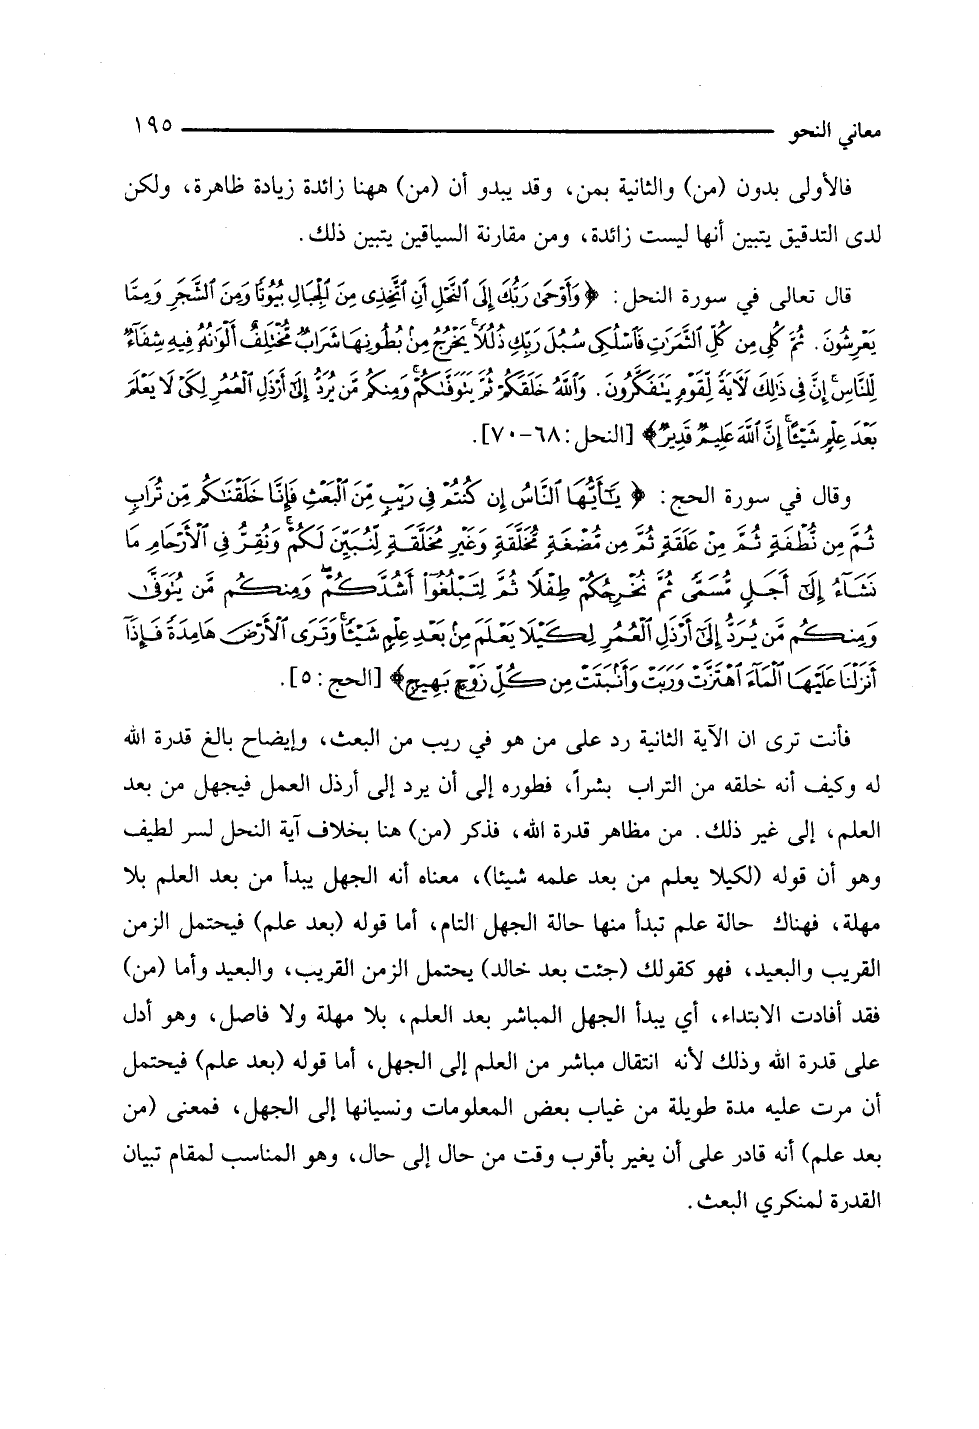 معاني النحو ١٩٥
فالأولى بدون (من) والثانية بمن، وقد يبدو أن (من) ههنا زائدة زيادة ظاهرة، ولكن
لدى التدقيق يتبين أنها ليست زائدة، ومن مقارنة السياقين يتبين ذلك.
قال تعالى في سورة النحل: ﴿وَأَوْحَىٰ رَبُّكَ إِلَى ٱلنَّحْلِ أَنِ ٱتَّخِذِى مِنَ ٱلْجِبَالِ بُيُوتًا وَمِنَ ٱلشَّجَرِ وَمِمَّا
يَعْرِشُونَ. ثُمَّ كُلِى مِن كُلِّ ٱلثَّمَرَٰتِ فَٱسْلُكِى سُبُلَ رَبِّكِ ذُلُلًا ۚ يَخْرُجُ مِنۢ بُطُونِهَا شَرَابٌ مُّخْتَلِفٌ أَلْوَٰنُهُۥ فِيهِ شِفَآءٌ
لِّلنَّاسِ ۗ إِنَّ فِى ذَٰلِكَ لَآيَةً لِّقَوْمٍ يَتَفَكَّرُونَ. وَٱللَّهُ خَلَقَكُمْ ثُمَّ يَتَوَفَّىٰكُمْ ۚ وَمِنكُم مَّن يُرَدُّ إِلَىٰٓ أَرْذَلِ ٱلْعُمُرِ لِكَىْ لَا يَعْلَمَ
بَعْدَ عِلْمٍ شَيْـًٔا ۚ إِنَّ ٱللَّهَ عَلِيمٌ قَدِيرٌ﴾ [النحل:٦٨-٧٠].
وقال في سورة الحج: ﴿يَـٰٓأَيُّهَا ٱلنَّاسُ إِن كُنتُمْ فِى رَيْبٍ مِّنَ ٱلْبَعْثِ فَإِنَّا خَلَقْنَـٰكُم مِّن تُرَابٍ
ثُمَّ مِن نُّطْفَةٍ ثُمَّ مِنْ عَلَقَةٍ ثُمَّ مِن مُّضْغَةٍ مُّخَلَّقَةٍ وَغَيْرِ مُخَلَّقَةٍ لِّنُبَيِّنَ لَكُمْ ۚ وَنُقِرُّ فِى ٱلْأَرْحَامِ مَا
نَشَآءُ إِلَىٰٓ أَجَلٍ مُّسَمًّى ثُمَّ نُخْرِجُكُمْ طِفْلًا ثُمَّ لِتَبْلُغُوٓا۟ أَشُدَّكُمْ ۖ وَمِنكُم مَّن يُتَوَفَّىٰ
وَمِنكُم مَّن يُرَدُّ إِلَىٰٓ أَرْذَلِ ٱلْعُمُرِ لِكَيْلَا يَعْلَمَ مِنۢ بَعْدِ عِلْمٍ شَيْـًٔا ۚ وَتَرَى ٱلْأَرْضَ هَامِدَةً فَإِذَآ
أَنزَلْنَا عَلَيْهَا ٱلْمَآءَ ٱهْتَزَّتْ وَرَبَتْ وَأَنۢبَتَتْ مِن كُلِّ زَوْجٍۭ بَهِيجٍ﴾ [الحج:٥].
فأنت ترى ان الآية الثانية رد على من هو في ريب من البعث، وإيضاح بالغ قدرة الله
له وكيف أنه خلقه من التراب بشراً، فطوره إلى أن يرد إلى أرذل العمل فيجهل من بعد
العلم، إلى غير ذلك. من مظاهر قدرة الله، فذكر (من) هنا بخلاف آية النحل لسر لطيف
وهو أن قوله (لكيلا يعلم من بعد علمه شيئا)، معناه أنه الجهل يبدأ من بعد العلم بلا
مهلة، فهناك حالة علم تبدأ منها حالة الجهل التام، أما قوله (بعد علم) فيحتمل الزمن
القريب والبعيد، فهو كقولك (جئت بعد خالد) يحتمل الزمن القريب، والبعيد وأما (من)
فقد أفادت الابتداء، أي يبدأ الجهل المباشر بعد العلم، بلا مهلة ولا فاصل، وهو أدل
على قدرة الله وذلك لأنه انتقال مباشر من العلم إلى الجهل، أما قوله (بعد علم) فيحتمل
أن مرت عليه مدة طويلة من غياب بعض المعلومات ونسيانها إلى الجهل، فمعنى (من
بعد علم) أنه قادر على أن يغير بأقرب وقت من حال إلى حال، وهو المناسب لمقام تبيان
القدرة لمنكري البعث.